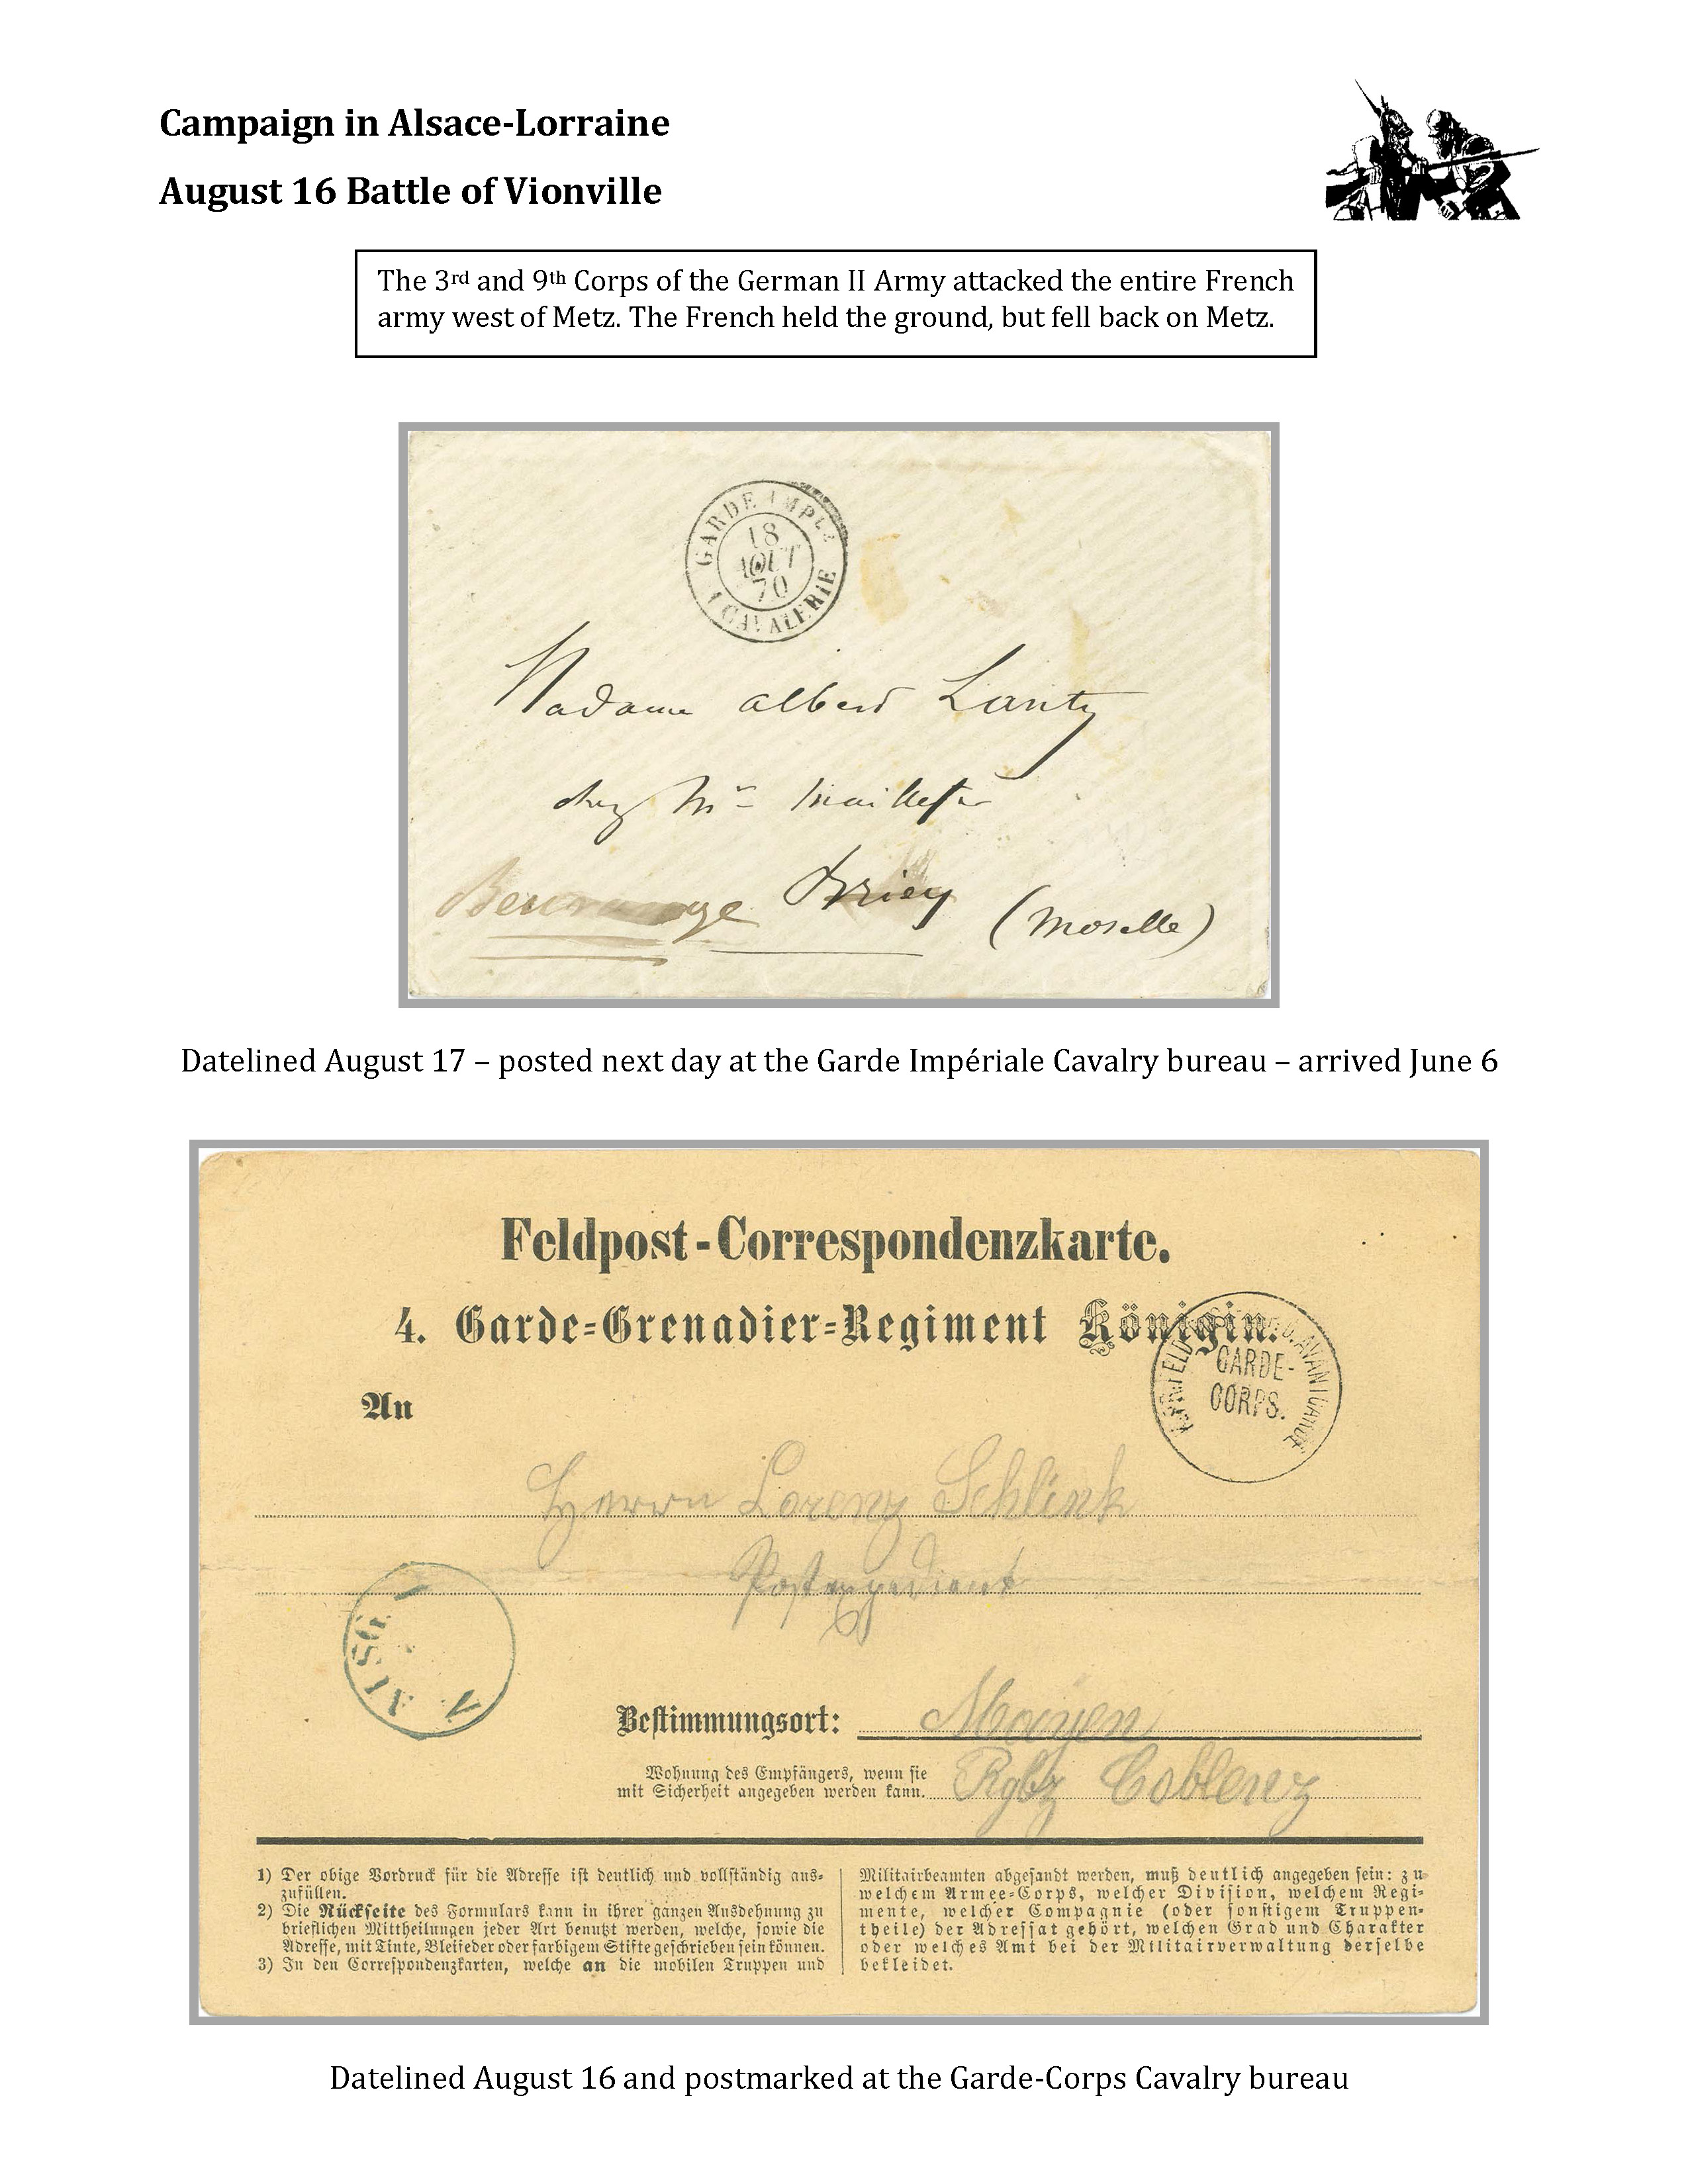 Campaign in Alsace-Lorraine
August 16 Battle of Vionville
The 3rd and 9th Corps of the German II Army attacked the entire French
army west of Metz. The French held the ground, but fell back on Metz.
GARDE IMPLE
18
AOUT
70
CAVALERIE
Madame albert Lanty
chez Mr
Beuvange Briey (Moselle)
Datelined August 17 – posted next day at the Garde Impériale Cavalry bureau – arrived June 6
Feldpost-Correspondenzkarte.
4. Garde-Grenadier-Regiment Königin.
GARDE-
CORPS.
An
Herrn Lorenz Schlink
Postexpedient
Bestimmungsort: Mayen
Wohnung des Empfängers, wenn sie
mit Sicherheit angegeben werden kann. Rgbz Coblenz
1) Der obige Vordruck für die Adresse ist deutlich und vollständig aus-
zufüllen.
2) Die Rückseite des Formulars kann in ihrer ganzen Ausdehnung zu
brieflichen Mittheilungen jeder Art benutzt werden, welche, sowie die
Adresse, mit Tinte, Bleifeder oder farbigem Stifte geschrieben sein können.
3) In den Correspondenzkarten, welche an die mobilen Truppen und
Militairbeamten abgesandt werden, muß deutlich angegeben sein: zu
welchem Armee-Corps, welcher Division, welchem Regi-
mente, welcher Compagnie (oder sonstigem Truppen-
theile) der Adressat gehört, welchen Grad und Charakter
oder welches Amt bei der Militairverwaltung derselbe
bekleidet.
Datelined August 16 and postmarked at the Garde-Corps Cavalry bureau